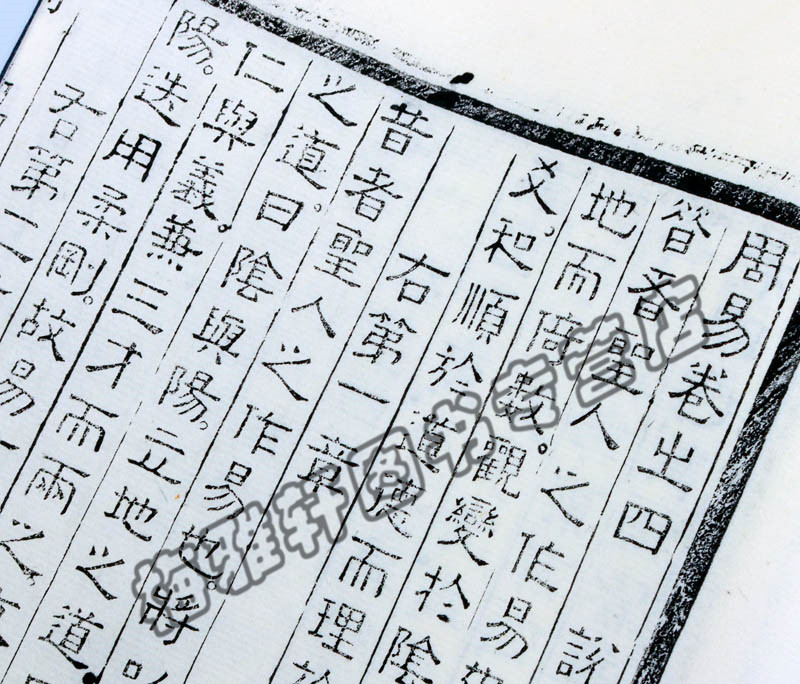 周易卷㞢四
昔者聖人之作易
地而倚數。觀變於陰
爻。和順於道德而理於
右第一章
昔者聖人之作易也。將以
之道。曰陰與陽。立地之道
仁與義。兼三才而兩之
陽。迭用柔剛。故易
右第二
梅雅轩图书专营店